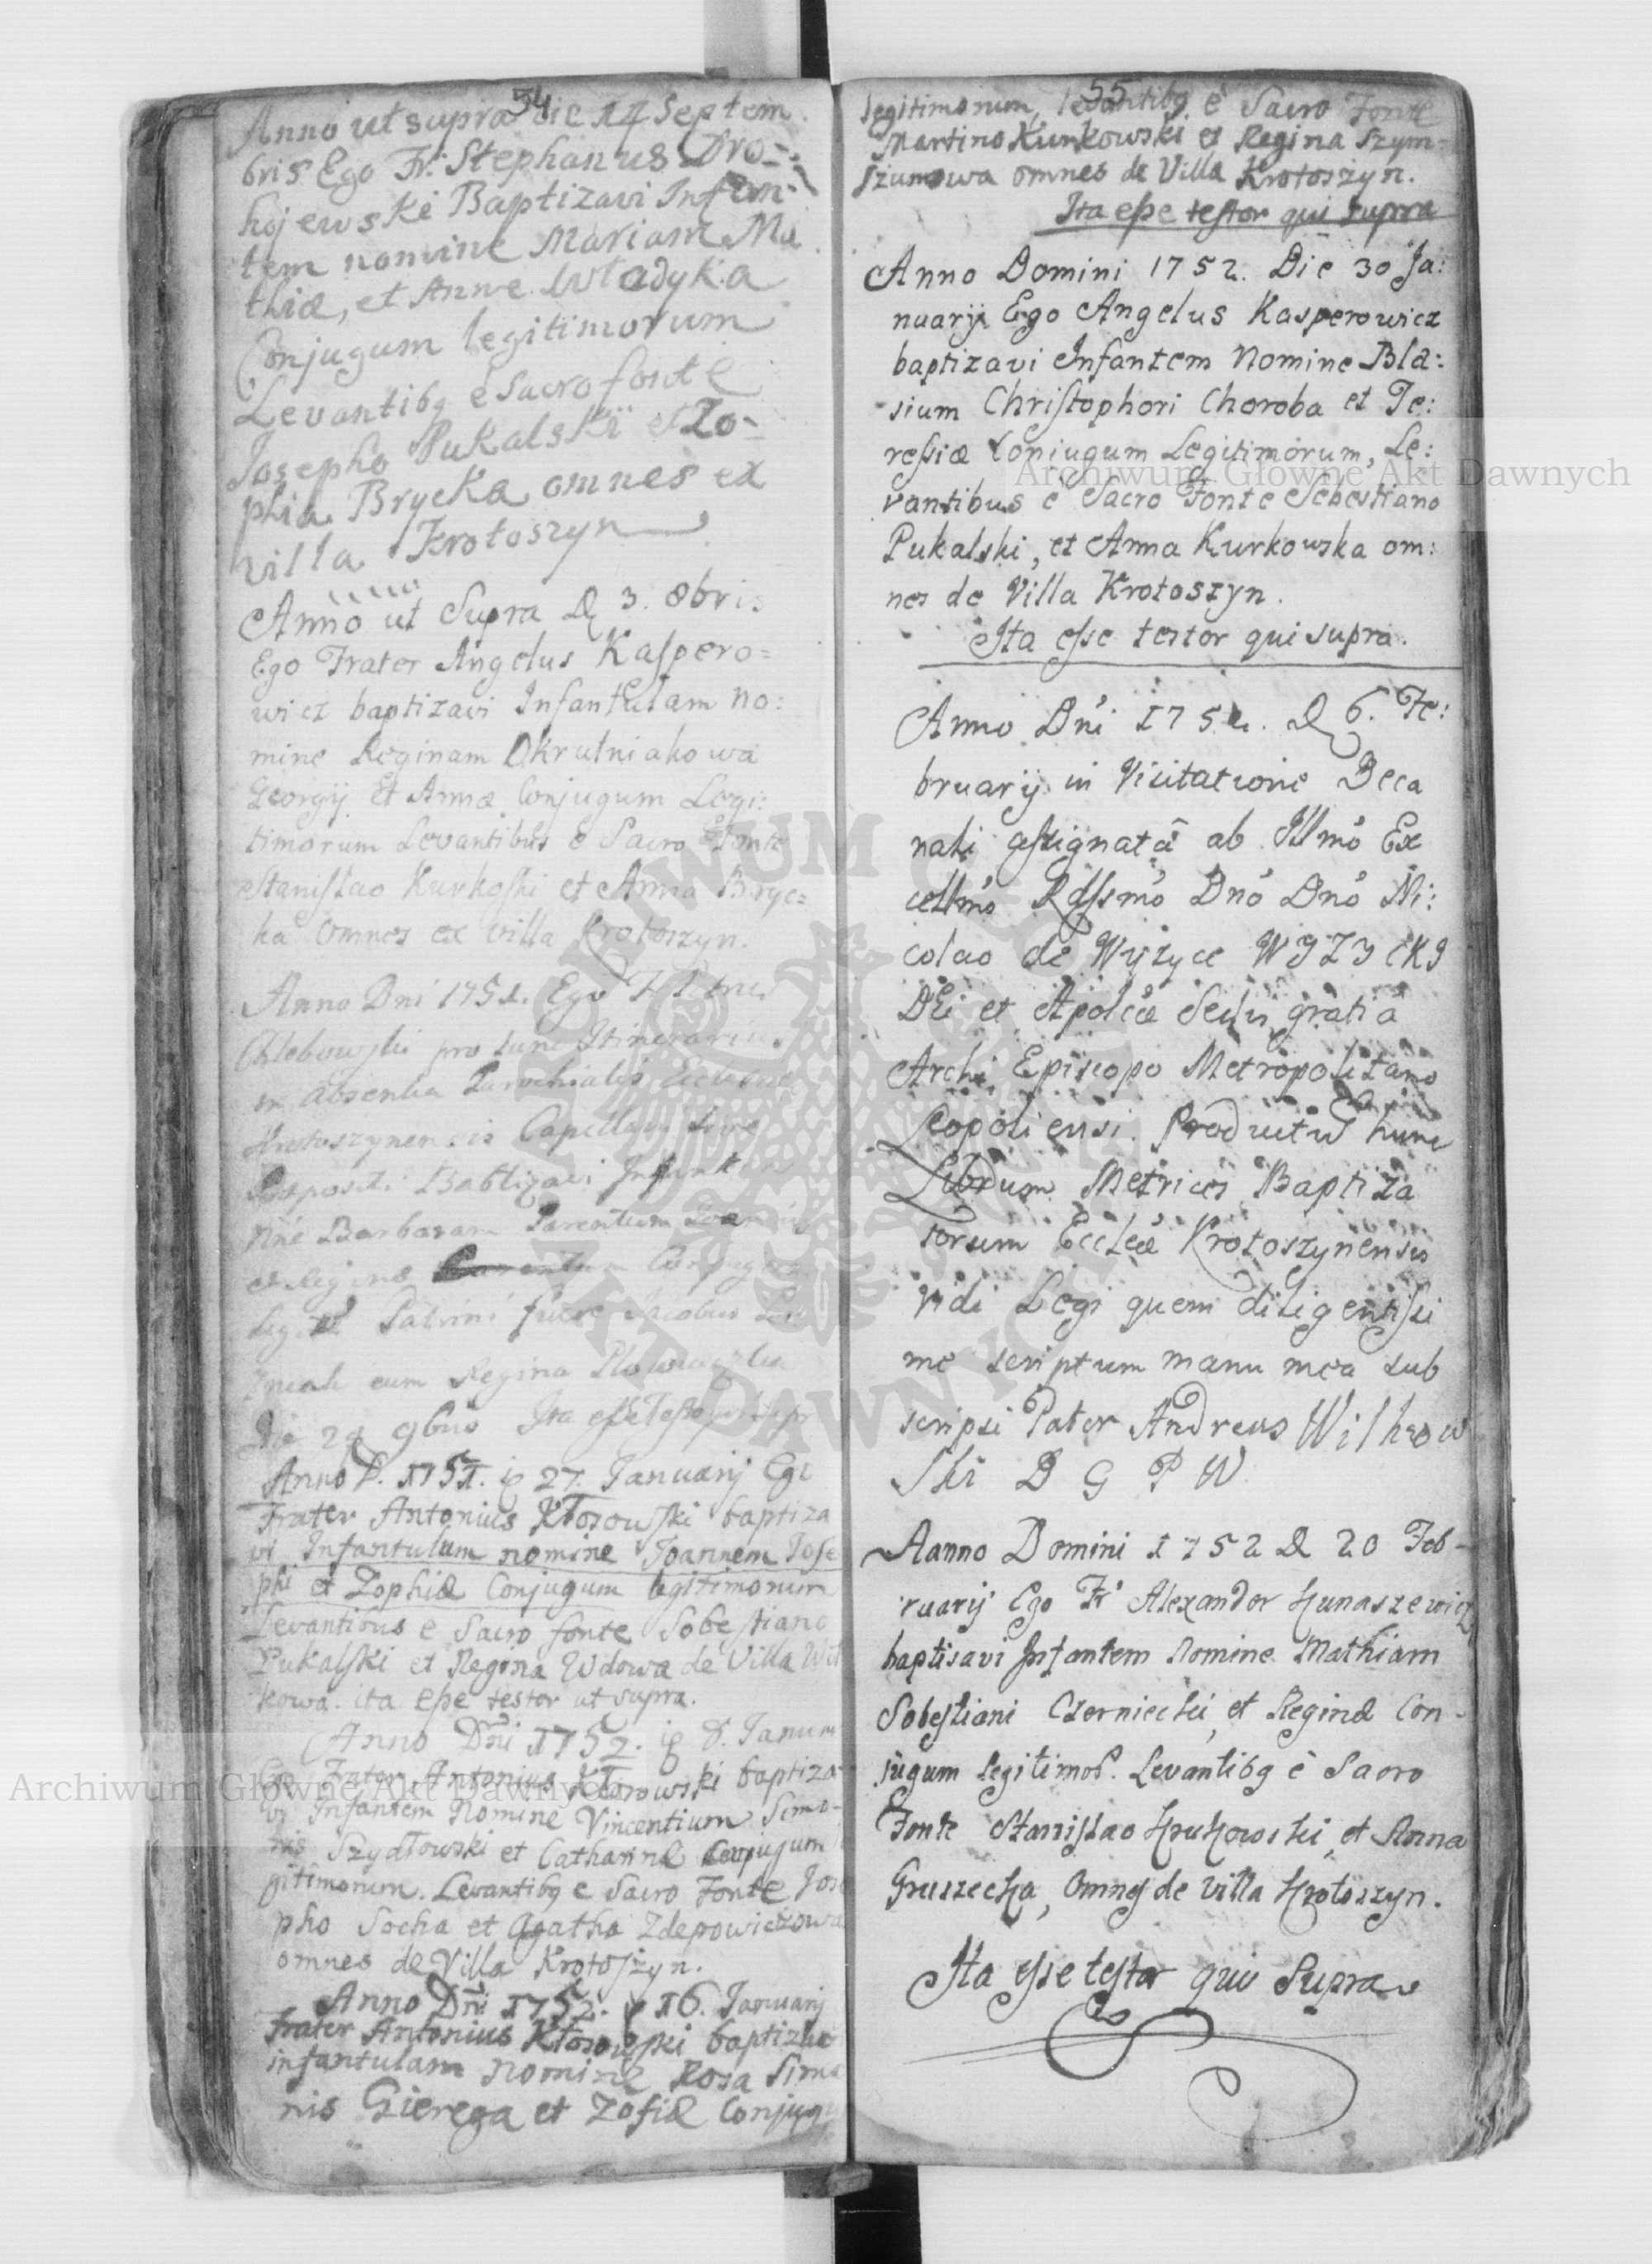 54
Anno ut supra die 14 Septem
bris Ego Fr: Stephanus Dro-
hojewski Baptizavi Infan-
tem nomine Mariam Ma
thiæ, et Annæ Władyka
Conjugum legitimorum
Levantibq e Sacro fonte
Josepho Pukalskii et Zo-
phia Brycka omnes ex
villa Krotoszyn
Anno ut Supra D 3. 8bris
Ego Frater Angelus Kaspero=
wicz baptizavi Infantulam no:
mine Reginam Okrutniakowa
Georgij Et Annæ Conjugum Legi:
timorum Levantibus e Sacro Fonte
Stanislao Kurkoski et Anna Bryc=
ka Omnes ex villa Krotoszyn.
Anno Dni 1751. Ego
Chlebowski pro tunc Itinerarius
in absentia Parochialis
Krotoszynensis
Præpositi Babtizavi
nne Barbaram Parentum
et Reginæ
Patrini fuere Jacobus
cum Regina
Die 29 9bris Ita esse Testor
Anno D. 1751. 27. Januarij Ego
Frater Antonius Kłosowski baptiza
vi Infantulum nomine Joannem Jose
phi et Zophiæ Conjugum legitimorum
Levantibus e Sacro fonte Sobestiano
Pukalski et Regina Wdowa de Villa Wit
kowa. ita esse testor ut supra.
Anno Dni 1752. D. Januar
Frater Antonius Kłosowski baptiza
vi Infantem Nomine Vincentium Simo-
nis Szydłowski et Catharinæ Conjugum
gitimorum. Levantibq e Sacro Fonte Jose
pho Socha et Agatha Zdepowiczowa
omnes de Villa Krotoszyn.
Anno Dni 1752. 16. Januarij
Frater Antonius Kłosowski baptizavi
infantulam nomine Rosa Simo
nis Gierega et Zofiæ Conjugu
55
legitimorum, levantibq e Sacro Fonte
Martino Kurkowski et Regina Szym=
szumowa omnes de Villa Krotoszyn.
Ita esse testor qui supra
Anno Domini 1752. Die 30 Ja:
nuarij Ego Angelus Kasperowicz
baptizavi Infantem Nomine Bla:
sium Christophori Choroba et Te:
resiæ Conjugum Legitimorum, Le:
vantibus e Sacro Fonte Sebestiano
Pukalski, et Anna Kurkowska om:
nes de Villa Krotoszyn.
Ita esse testor qui supra.
Anno Dni 1752. D 6. Fe:
bruarij in Visitatione Deca
nali assignatâ ab Illmo Ex
cellmo Rdssmo Dno Dno Ni:
colao de Wyzyce WYZYCKI
DEi et Aplicæ Sedis gratia
Archi Episcopo Metropolitano
Leopoliensi. Productum hunc
Librum Metrices Baptiza
torum Ecclæ Krotoszynensis
vidi Legi quem diligentissi
me scriptum manu mea sub
scripsi Pater Andreas Wilkow
ski D G P W
Aanno Domini 1752 D 20 Feb-
ruarij Ego Fr Alexander Hunaszewicz
baptisavi Infantem Nomine Mathiam
Sobestiani Czerniecki, et Reginæ Con-
jugum legitimo?. Levantibq e Sacro
Fonte Stanislao Krukowski, et Anna
Gruszecka, Omnes de villa Krotoszyn.
Ita esse testor qui Supra
Archiwum Główne Akt Dawnych
Archiwum Główne Akt Dawnych
ARCHIWUM GŁÓWNE AKT DAWNYCH